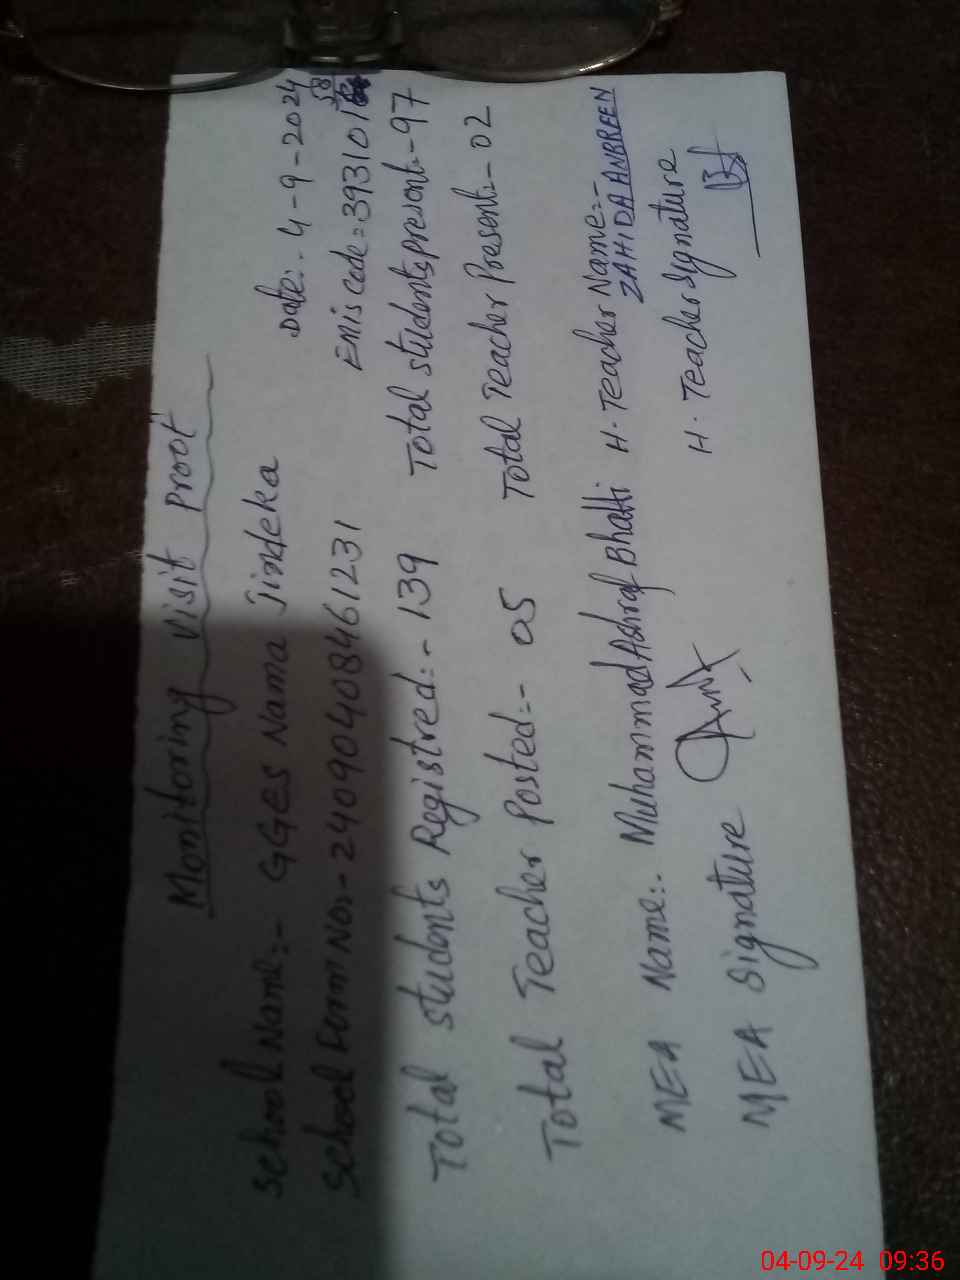 Monitoring Visit Proof
Date:- 4-9-2024
School Name:- GGES Nama Jindeka
58
Emis code = 393101
School Form No:- 24090408461231
Total Students Registred:- 139 Total students present:- 97
Total Teacher Posted:- 05 Total Teacher Present:- 02
MEA Name:- Muhammad Ashraf Bhatti H. Teacher Name:-
ZAHIDA ANBREEN
MEA Signature H. Teacher Signature
04-09-24 09:36